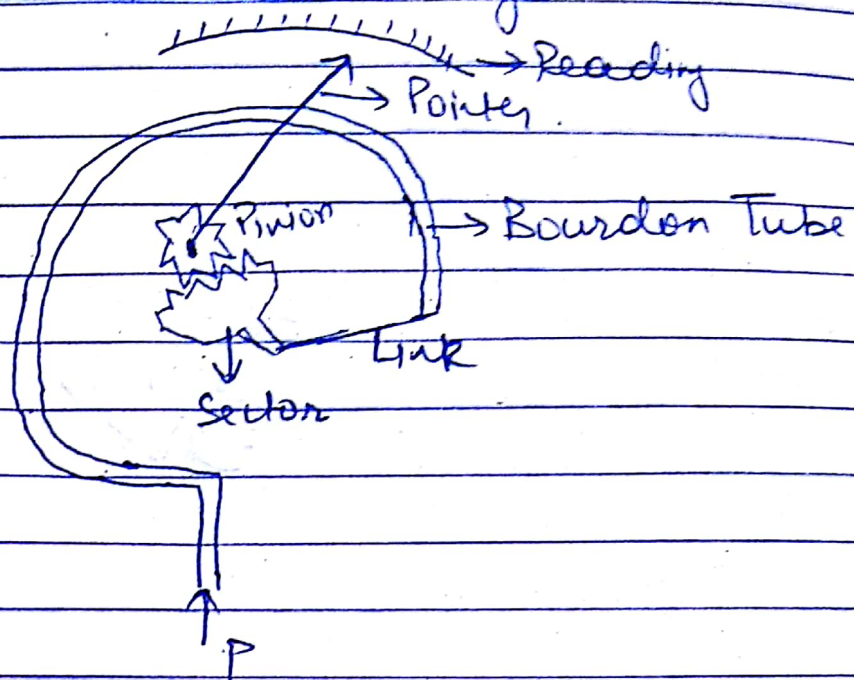 → Reading
→ Pointer.
Pinion
→ Bourdon Tube
Link
Sector
P